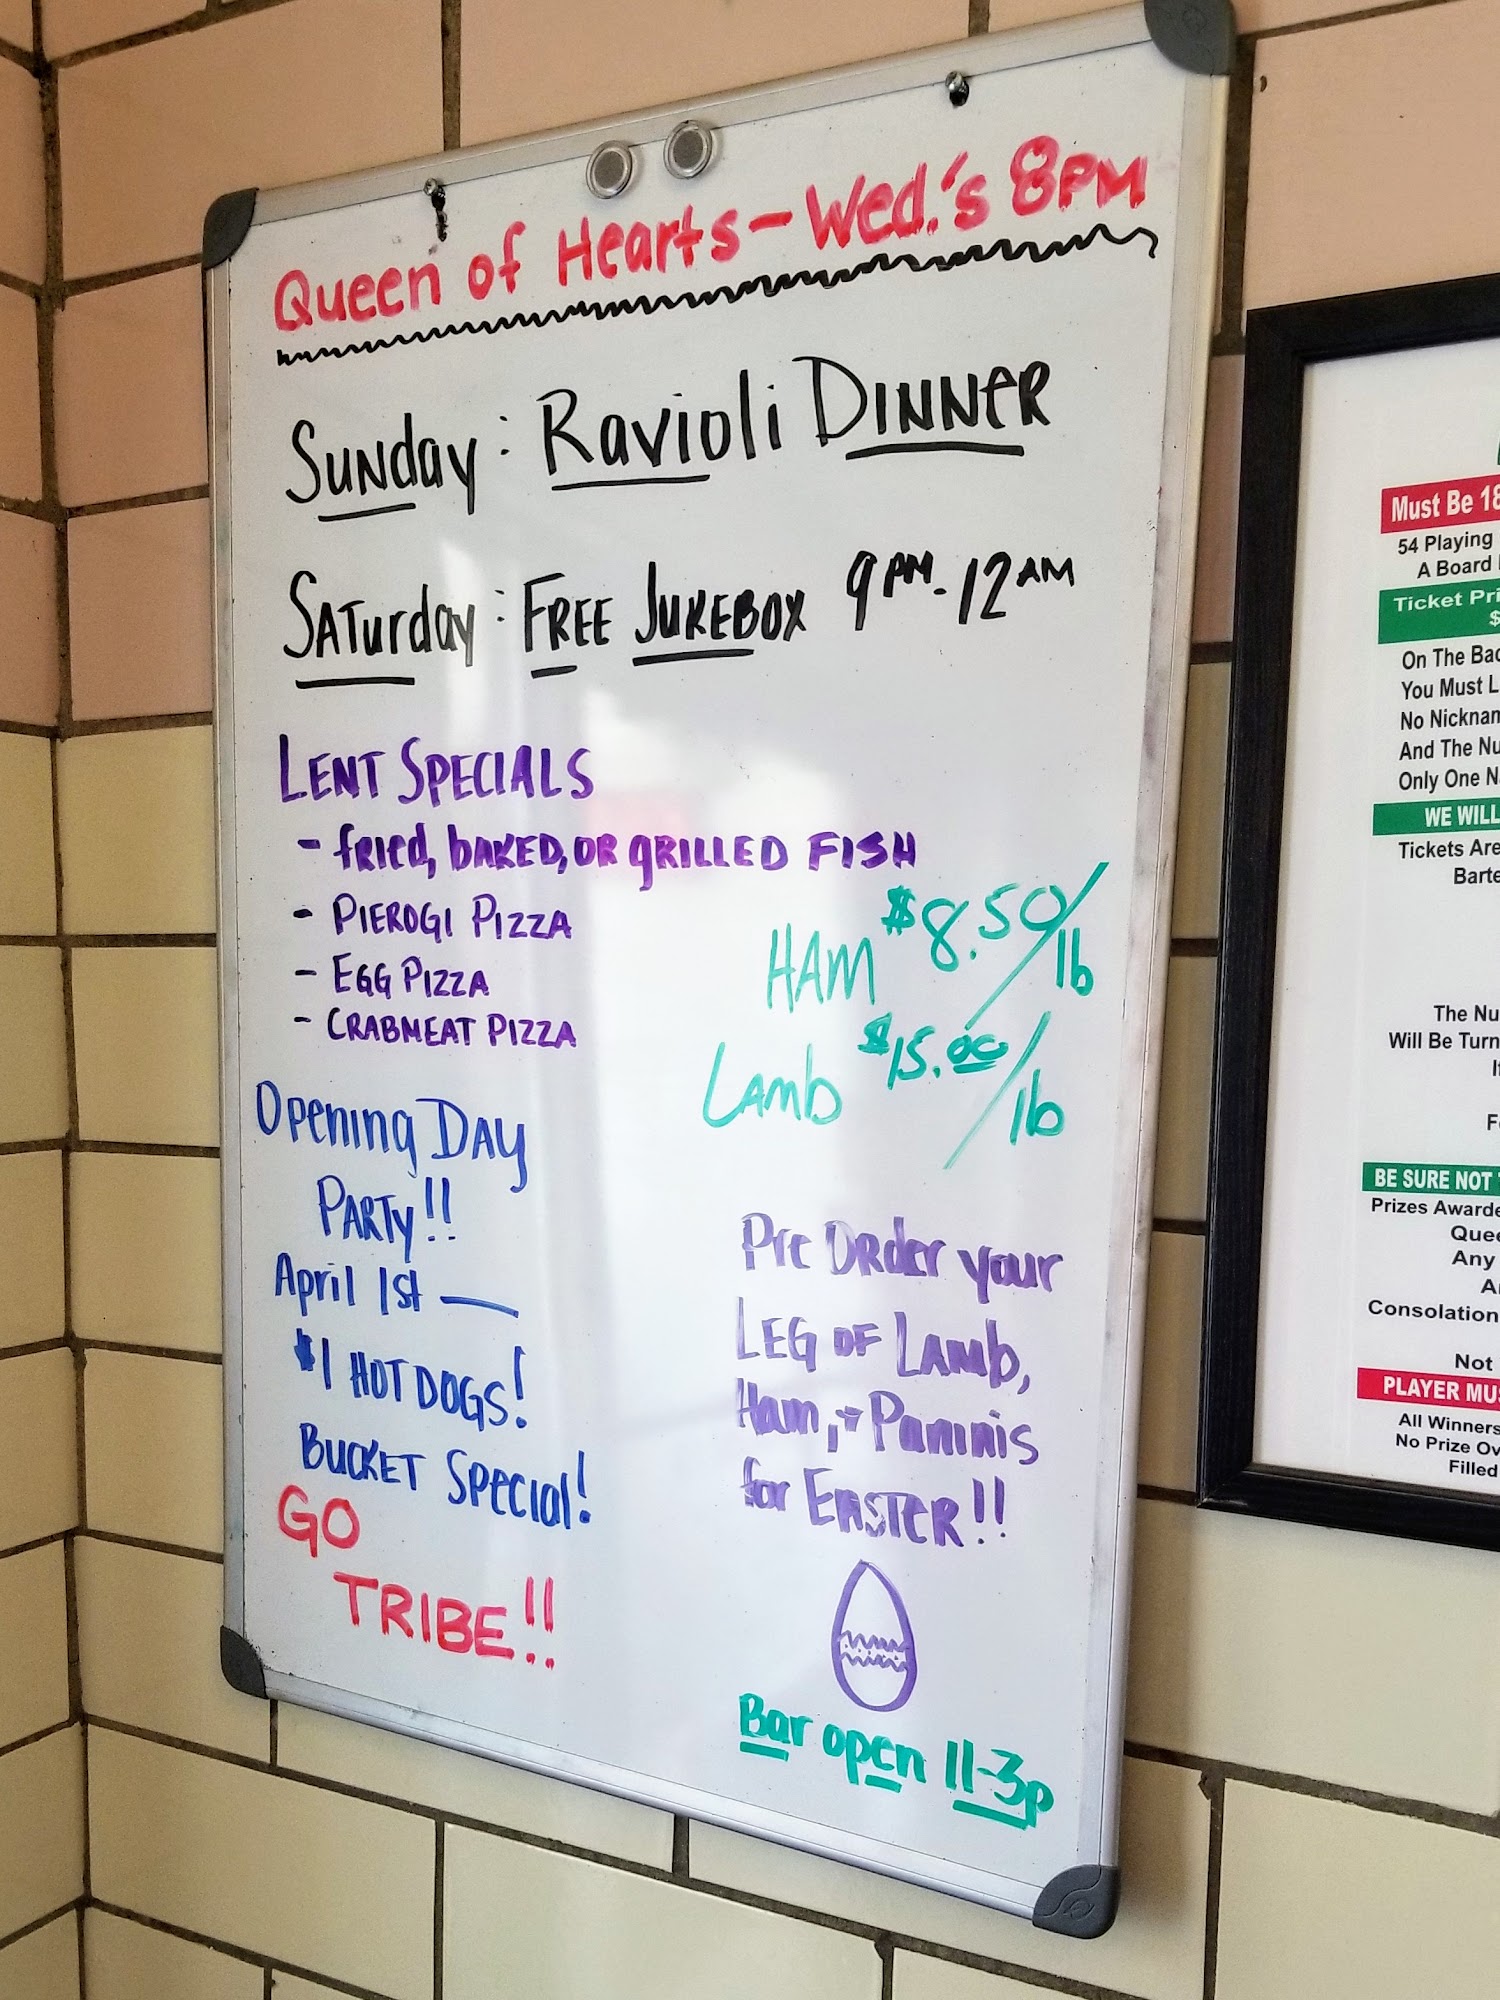 Queen of Hearts - Wed.'s 8PM
Sunday: Ravioli DINNER
SATurday: FREE JUKEBOX 9PM-12AM
LENT SPECIALS
- fried, bAKED, OR gRILLED FISH
- PIEROGI PIZZA
- EGG PIZZA
- CRABMEAT PIZZA
HAM $8.50/lb
LAmb $15.00/lb
Opening DAy
PARTy!!
April 1st —
$1 HOT DOGS!
BUCKET Special!
GO
TRIBE!!
Pre ORder your
LEG OF LAmb,
Ham, + Paninis
for EASTER!!
Bar open 11-3p
Must Be 18
54 Playing
A Board
Ticket Pri
$
On The Bac
You Must L
No Nicknam
And The Nu
Only One N
WE WILL
Tickets Are
Barte
The Nu
Will Be Turn
If
F
BE SURE NOT
Prizes Awarde
Quee
Any
A
Consolation
Not
PLAYER MUS
All Winners
No Prize Ov
Filled